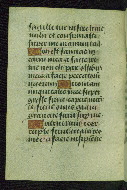 sagitte tue infixe sunt
michi et confirmasti
super me manum tuam
Non est sanitas in
carne mea a facie ire
tue non est pax ossibus
meis a facie peccatorum
meorum Quoniam
iniquitates mee super
gresse sunt caput meum
et sicut onus grave
gravate sunt super me
Putruerunt et cor
rupte sunt cicatrices
mee a facie insipientie